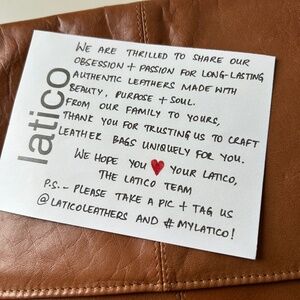 latico
WE ARE THRILLED TO SHARE OUR
OBSESSION + PASSION FOR LONG-LASTING
AUTHENTIC LEATHERS MADE WITH
BEAUTY, PURPOSE + SOUL.
FROM OUR FAMILY TO YOURS,
THANK YOU FOR TRUSTING US TO CRAFT
LEATHER BAGS UNIQUELY FOR YOU.
WE HOPE YOU ♥ YOUR LATICO,
THE LATICO TEAM
P.S. - PLEASE TAKE A PIC + TAG US
@LATICOLEATHERS AND #MYLATICO!